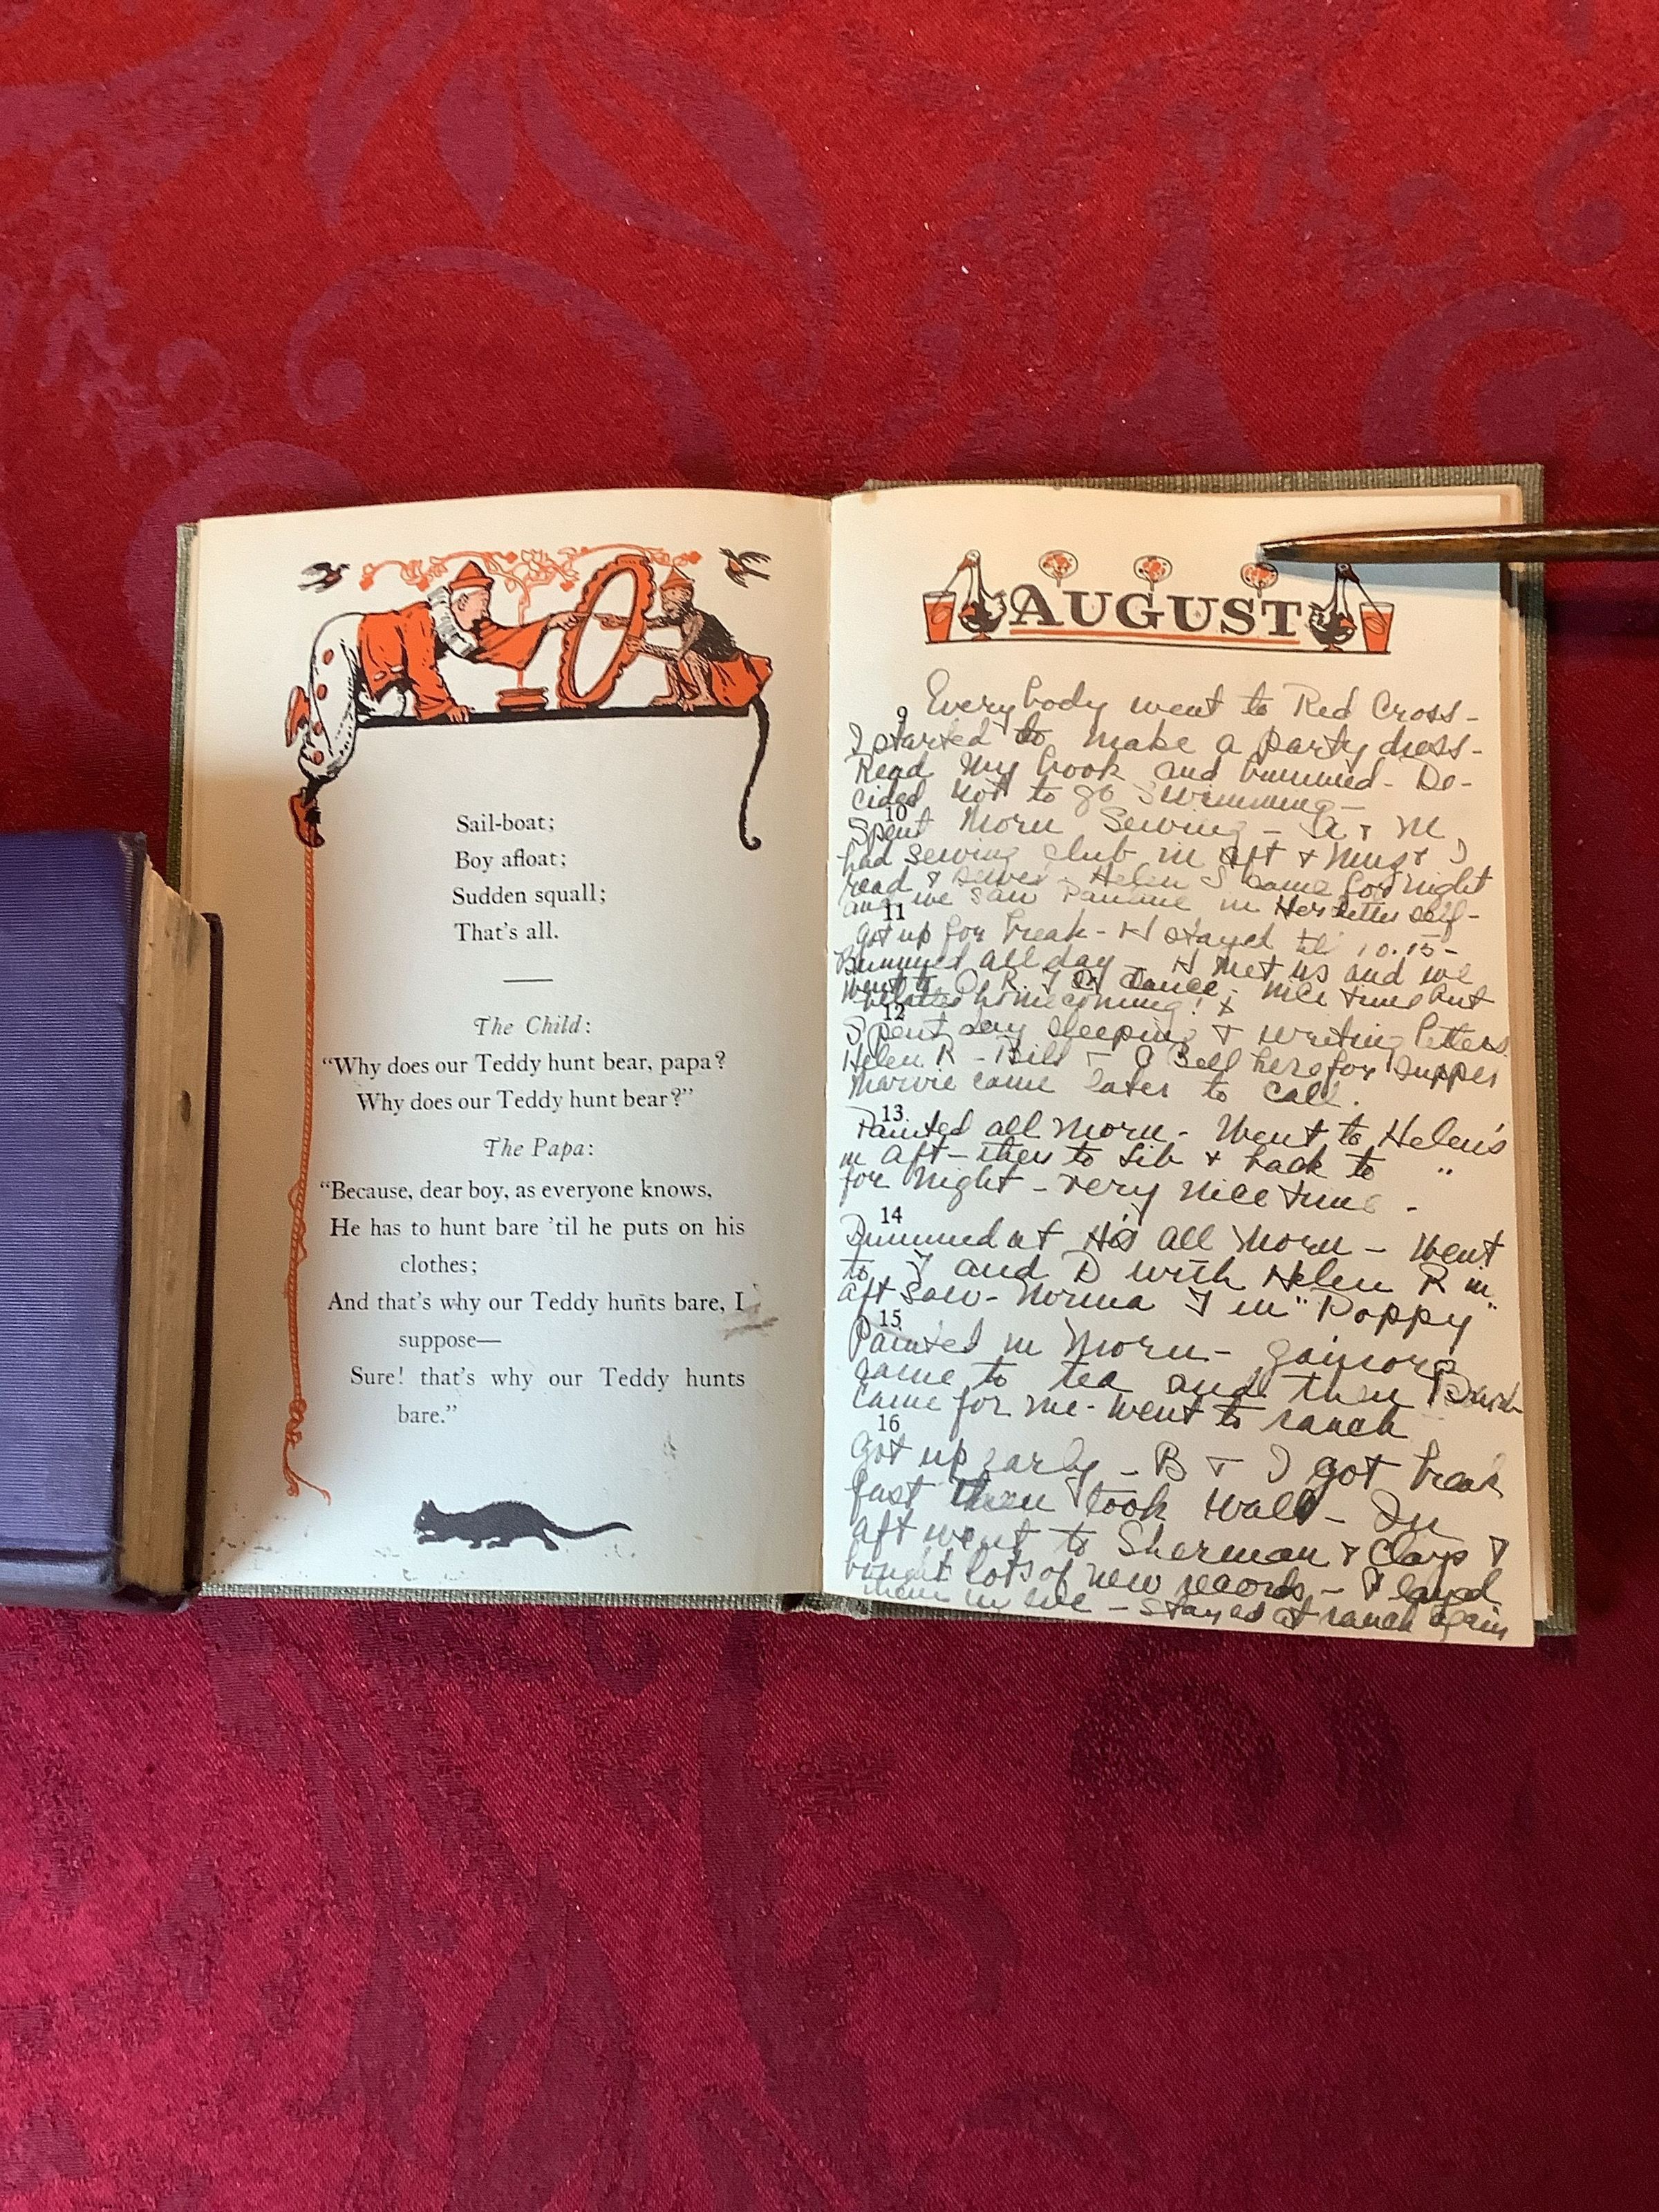 Sail-boat;
Boy afloat;
Sudden squall;
That's all.
The Child:
"Why does our Teddy hunt bear, papa?
Why does our Teddy hunt bear?"
The Papa:
"Because, dear boy, as everyone knows,
He has to hunt bare 'til he puts on his
clothes;
And that's why our Teddy hunts bare, I
suppose—
Sure! that's why our Teddy hunts
bare."
AUGUST
Everybody went to Red Cross-
9
I started to make a party dress-
Read my book and bummed - De-
cided not to go swimming-
10
Spent morn sewing - A + M
had sewing club in aft + I
read + sewed - Helen S came for night
and we saw Pauline in Her Better Self-
11
Got up for break - H stayed til 10.15-
Bummed all day - H met us and we
went to dance. nice time but
homecoming!
12
Spent day sleeping + writing letters
Helen R - Bill + Bell here for supper
Marvie came later to call.
13
Painted all morn - Went to Helen's
in aft - then to Lib + back to "
for night - very nice time -
14
Bummed at H's all morn - Went
to T and D with Helen R in
aft saw - Norma T in "Poppy"
15
Painted in morn -
came to tea and then
came for me - went to ranch
16
Got up early - B + I got break
fast then took walk - In
aft went to Sherman + Clays +
bought lots of new records - Played
them in eve - stayed at ranch again